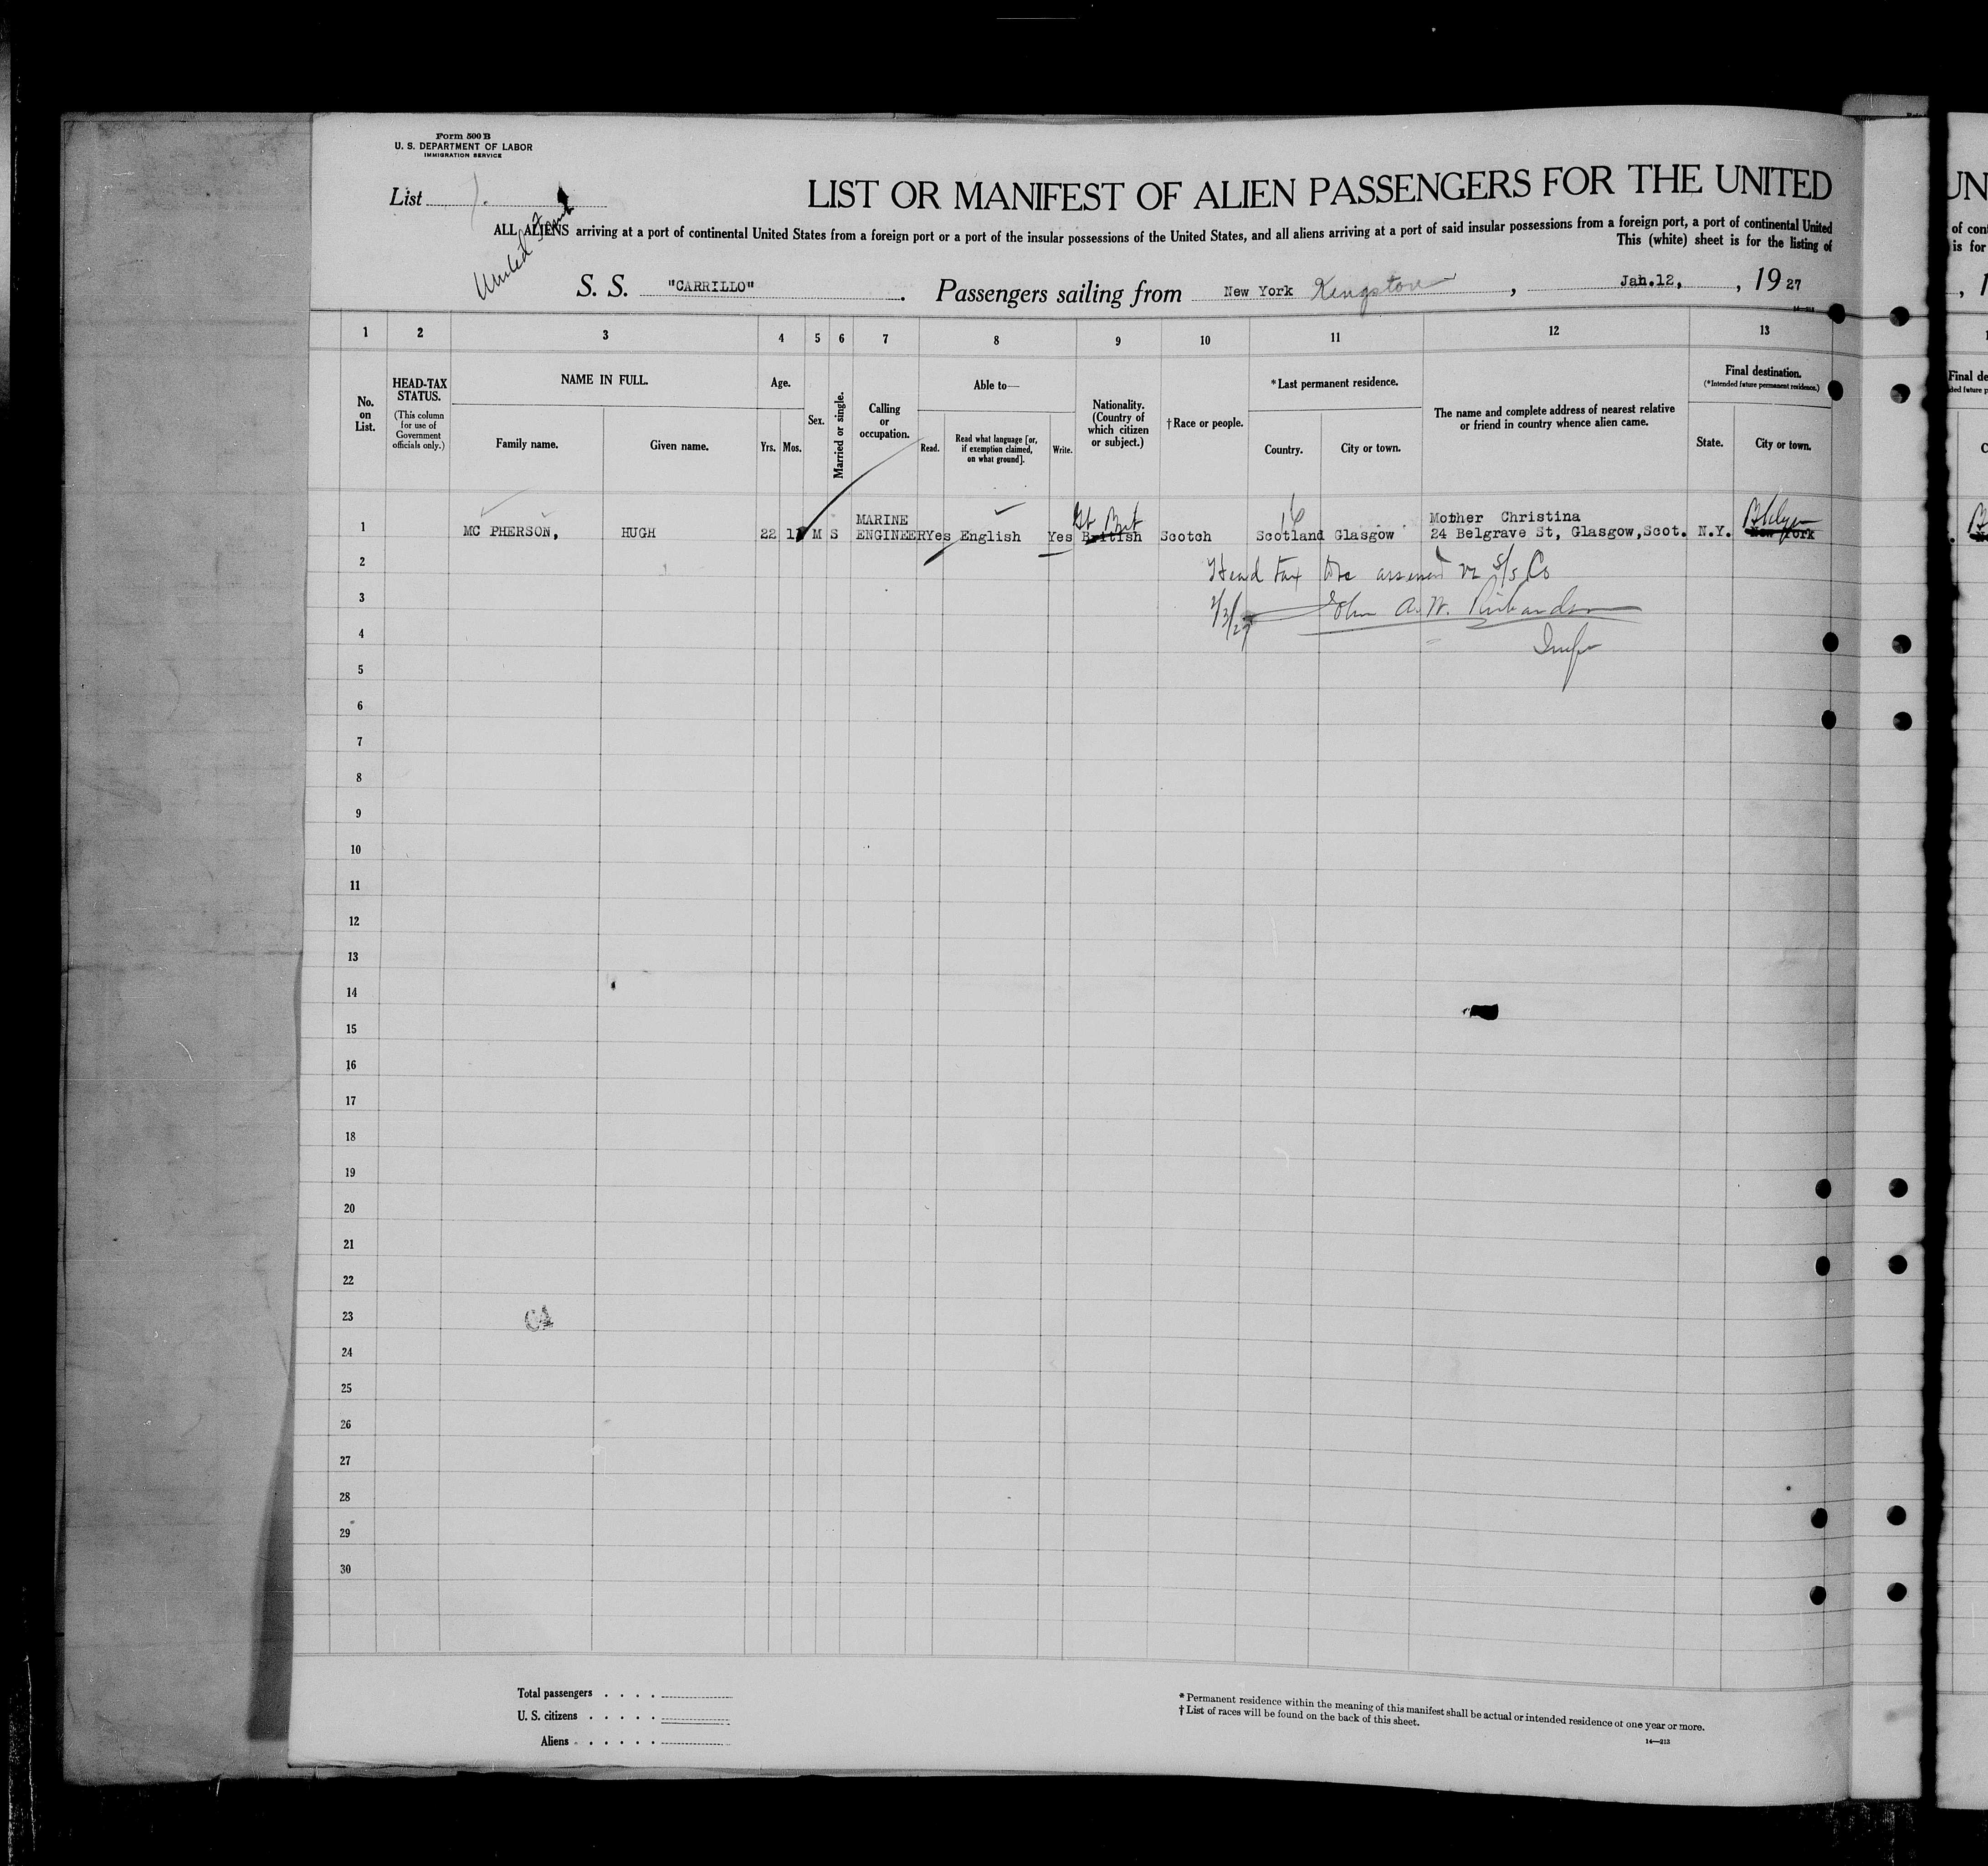 Form 500 B
U. S. DEPARTMENT OF LABOR
IMMIGRATION SERVICE
List 1.
LIST OR MANIFEST OF ALIEN PASSENGERS FOR THE UNITED
ALL ALIENS arriving at a port of continental United States from a foreign port or a port of the insular possessions of the United States, and all aliens arriving at a port of said insular possessions from a foreign port, a port of continental United
This (white) sheet is for the listing of
United Fruit
S. S. "CARRILLO". Passengers sailing from New York Kingston, Jan.12, , 1927
14—213
1 2 3 4 5 6 7 8 9 10 11 12 13
No. on List.
HEAD-TAX STATUS.
(This column for use of Government officials only.)
NAME IN FULL.
Family name.
Given name.
Age.
Yrs. Mos.
Sex.
Married or single.
Calling or occupation.
Able to—
Read.
Read what language [or, if exemption claimed, on what ground].
Write.
Nationality. (Country of which citizen or subject.)
†Race or people.
*Last permanent residence.
Country.
City or town.
The name and complete address of nearest relative or friend in country whence alien came.
Final destination.
(*Intended future permanent residence.)
State.
City or town.
1 MC PHERSON, HUGH 22 11 M S MARINE ENGINEER Yes English Yes Gt Brit British Scotch Scotland Glasgow Mother Christina 24 Belgrave St, Glasgow,Scot. N.Y. Bklyn New York
2 Head tax to be assessed vs S/S Co
3 John A. W. Richardson
4 Insp
5
6
7
8
9
10
11
12
13
14
15
16
17
18
19
20
21
22
23
24
25
26
27
28
29
30
Total passengers . . . .
U. S. citizens . . . . .
Aliens . . . . . .
* Permanent residence within the meaning of this manifest shall be actual or intended residence of one year or more.
† List of races will be found on the back of this sheet.
14—213